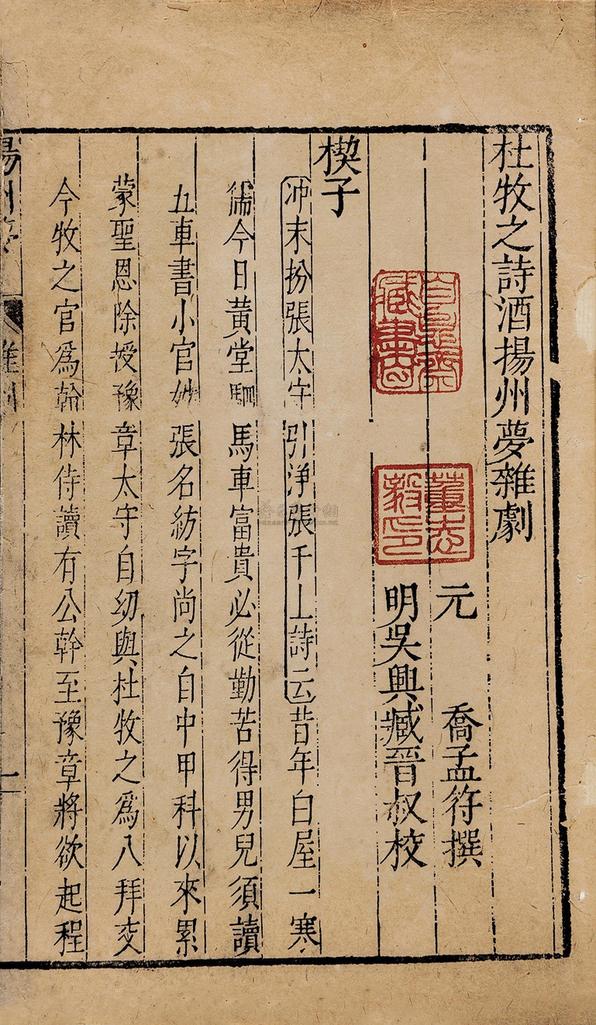 杜牧之詩酒揚州夢雜劇
元　喬孟符撰
明吳興臧晉叔校
楔子
冲末扮張太守引淨張千上詩云昔年白屋一寒
儒今日黃堂駟馬車富貴必從勤苦得男兒須讀
五車書小官姓張名紡字尚之自中甲科以來累
蒙聖恩除授豫章太守自幼與杜牧之爲八拜交
今牧之官爲翰林侍讀有公幹至豫章將欲起程
揚州夢
雜劇
一
藏書
董志
毅印